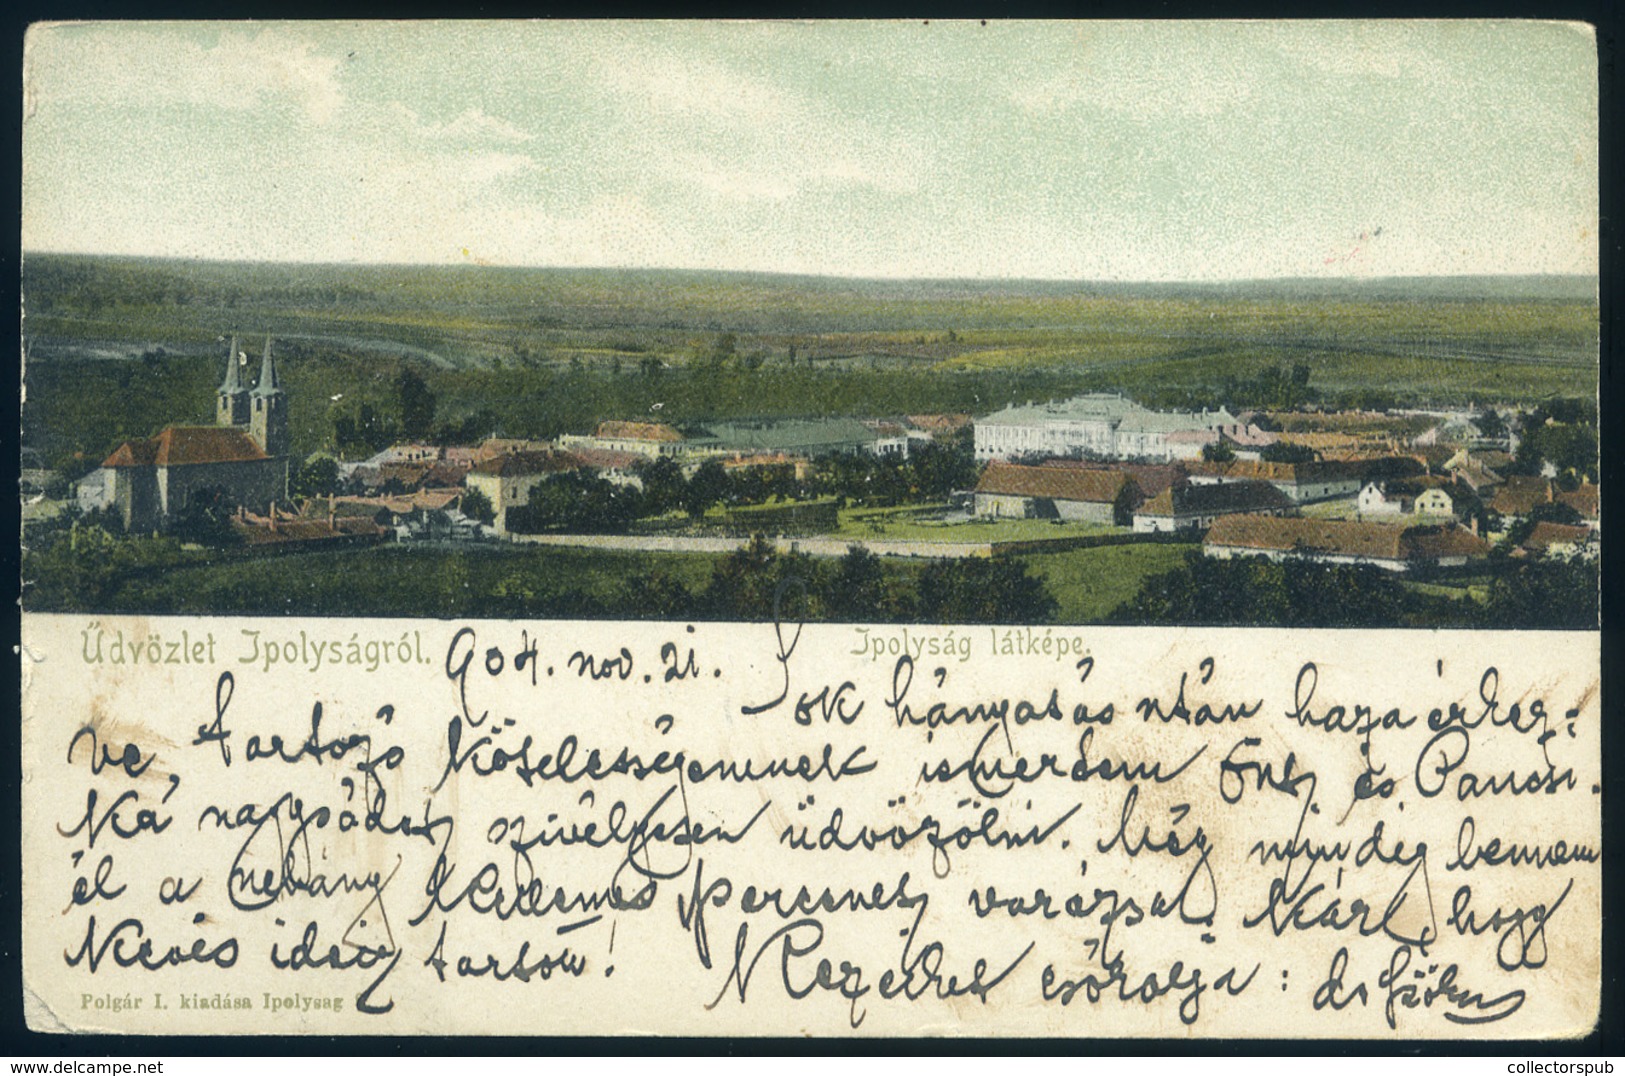 Üdvözlet Ipolyságról.
Ipolyság látképe.
904. nov. 21.
Sok hányatás után haza érkez=
ve, tartozó kötelességemnek ismertem Önt, és Pancsi.
ka nagysádat szívélyesen üdvözölni. Még mindig bennem
él a néhány kellemes percnek varázsa. Kár, hogy
kevés ideig tartott!
Kezeiket csókolja: dr
Polgár I. kiadása Ipolyság
collectorspub